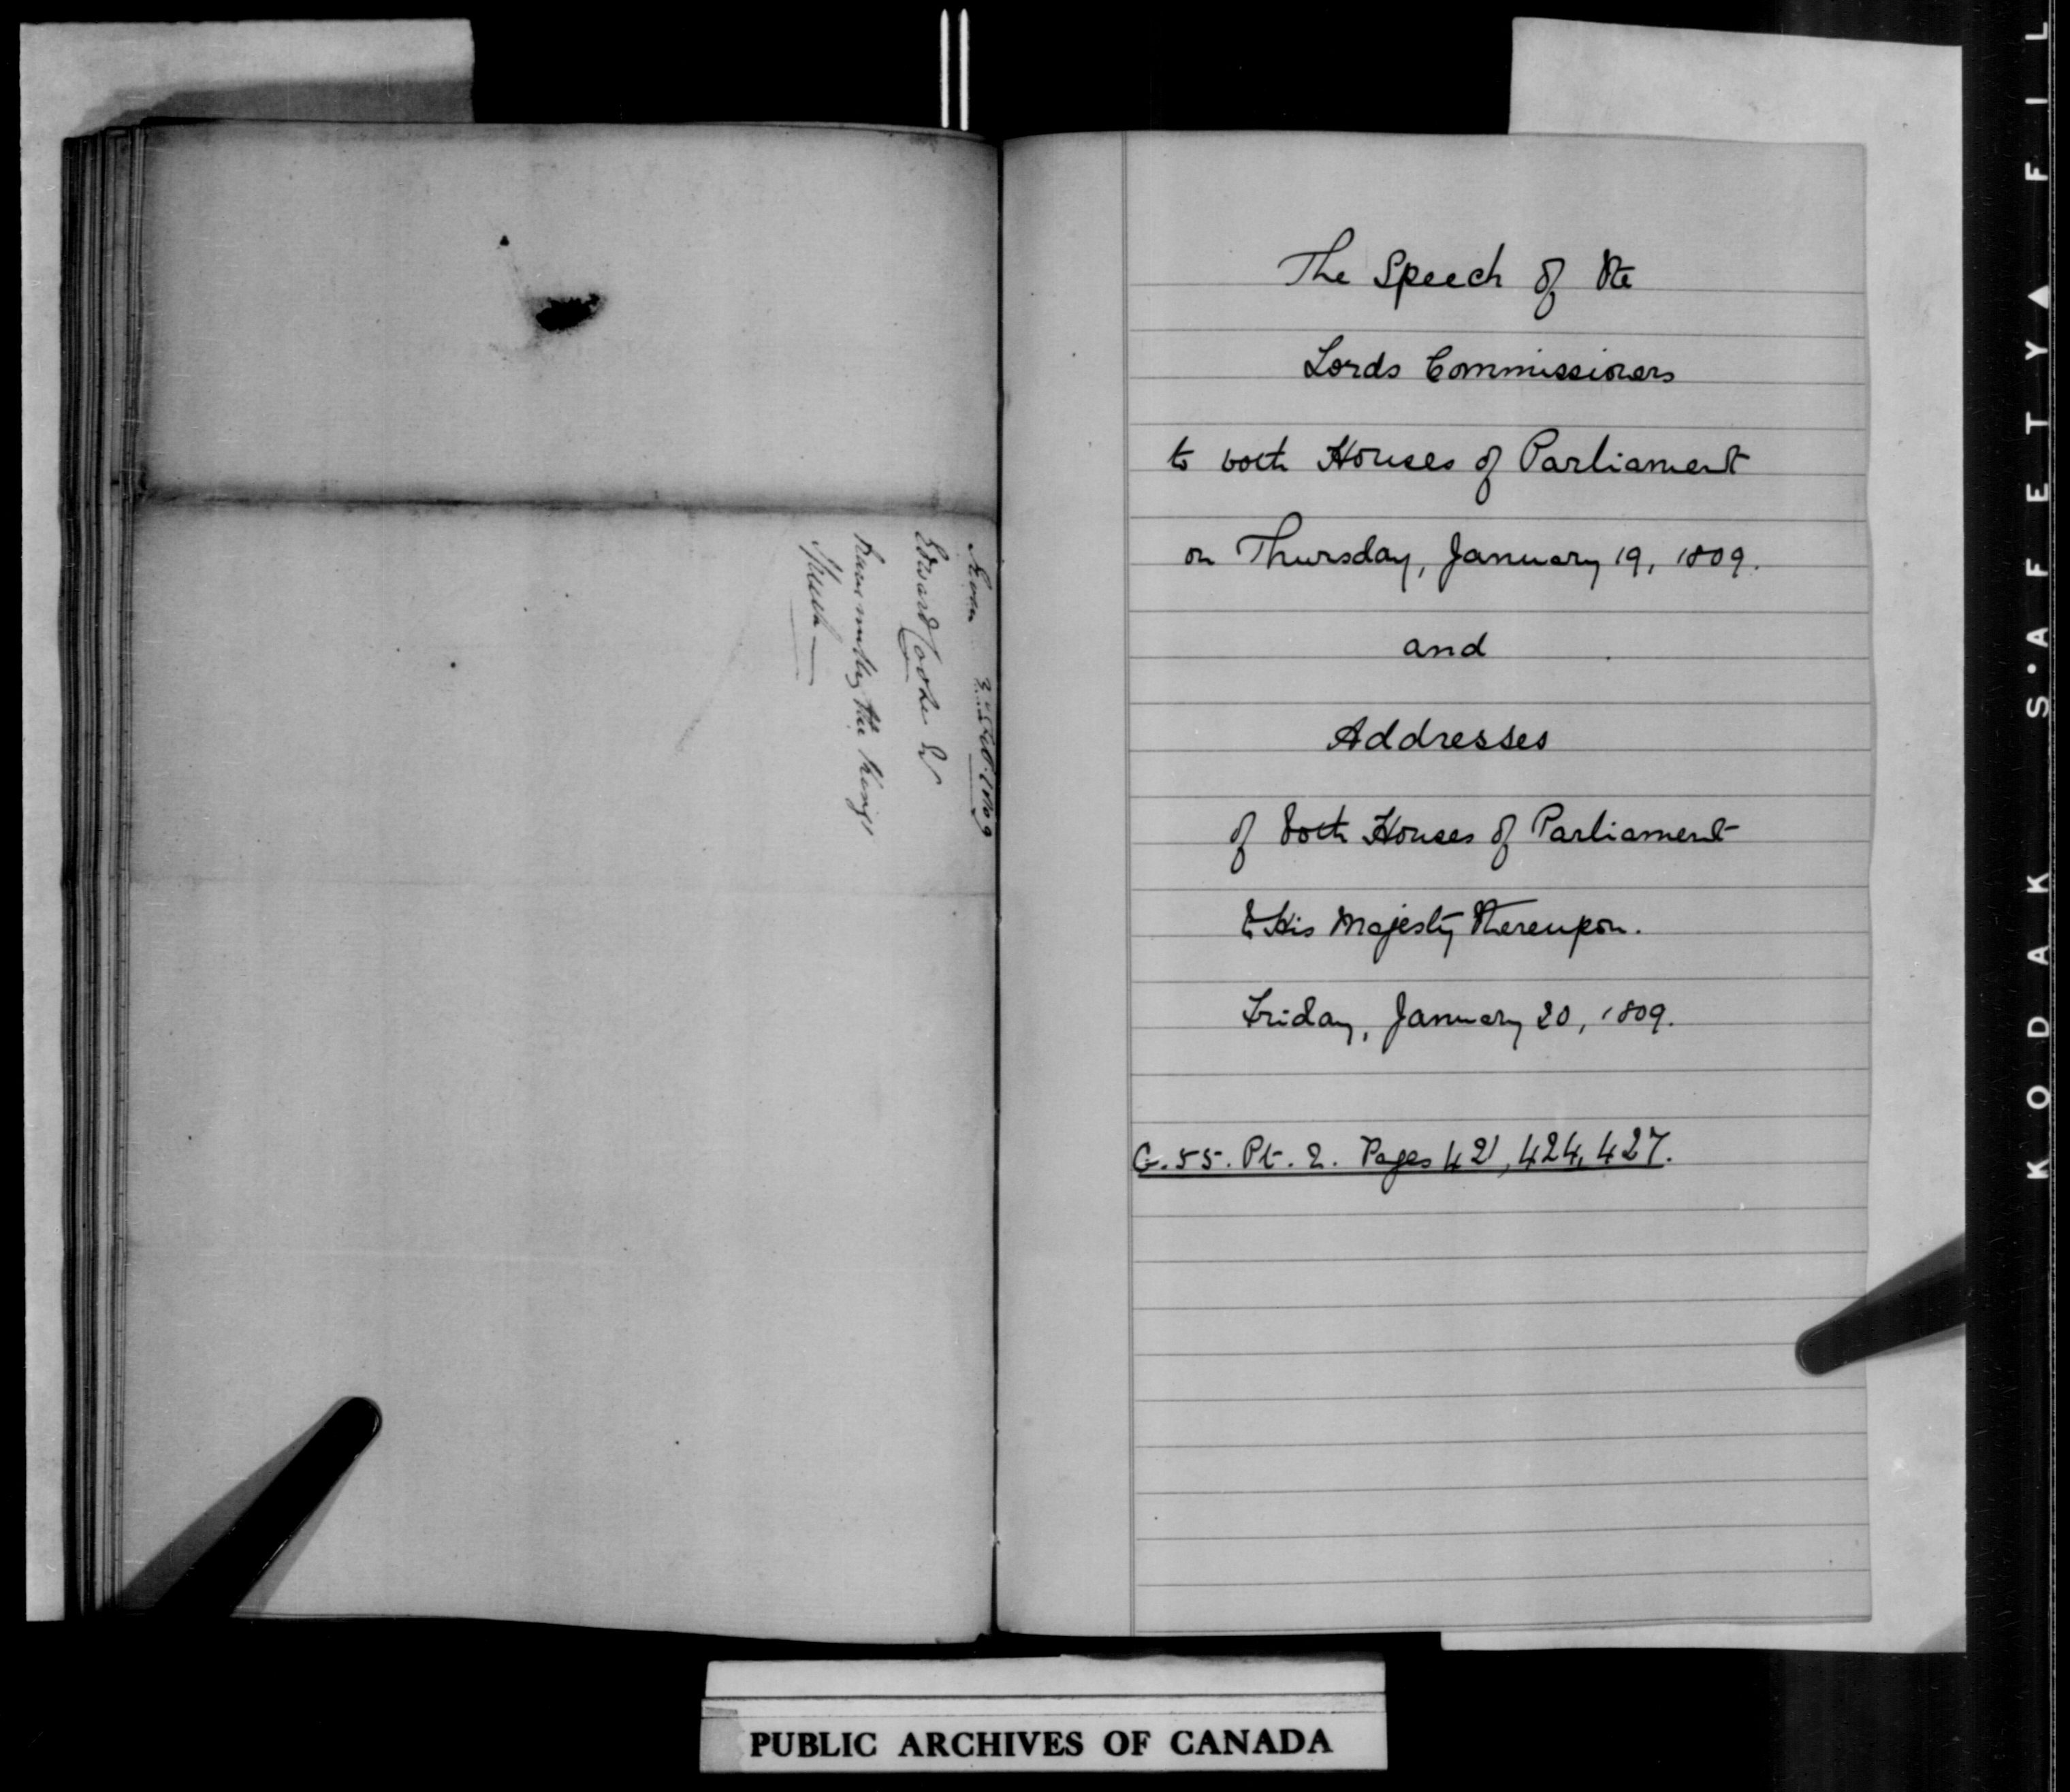 3rd Feb. 1809
Edward Cooke
Transmitting the King's
Speech
The Speech of the
Lords Commissioners
to both Houses of Parliament
on Thursday, January 19, 1809.
and
Addresses
of both Houses of Parliament
to His Majesty thereupon.
Friday, January 20, 1809.
C. 55. Pt. 2. Pages 421, 424, 427.
PUBLIC ARCHIVES OF CANADA
KODAK S·AFETY▲FIL